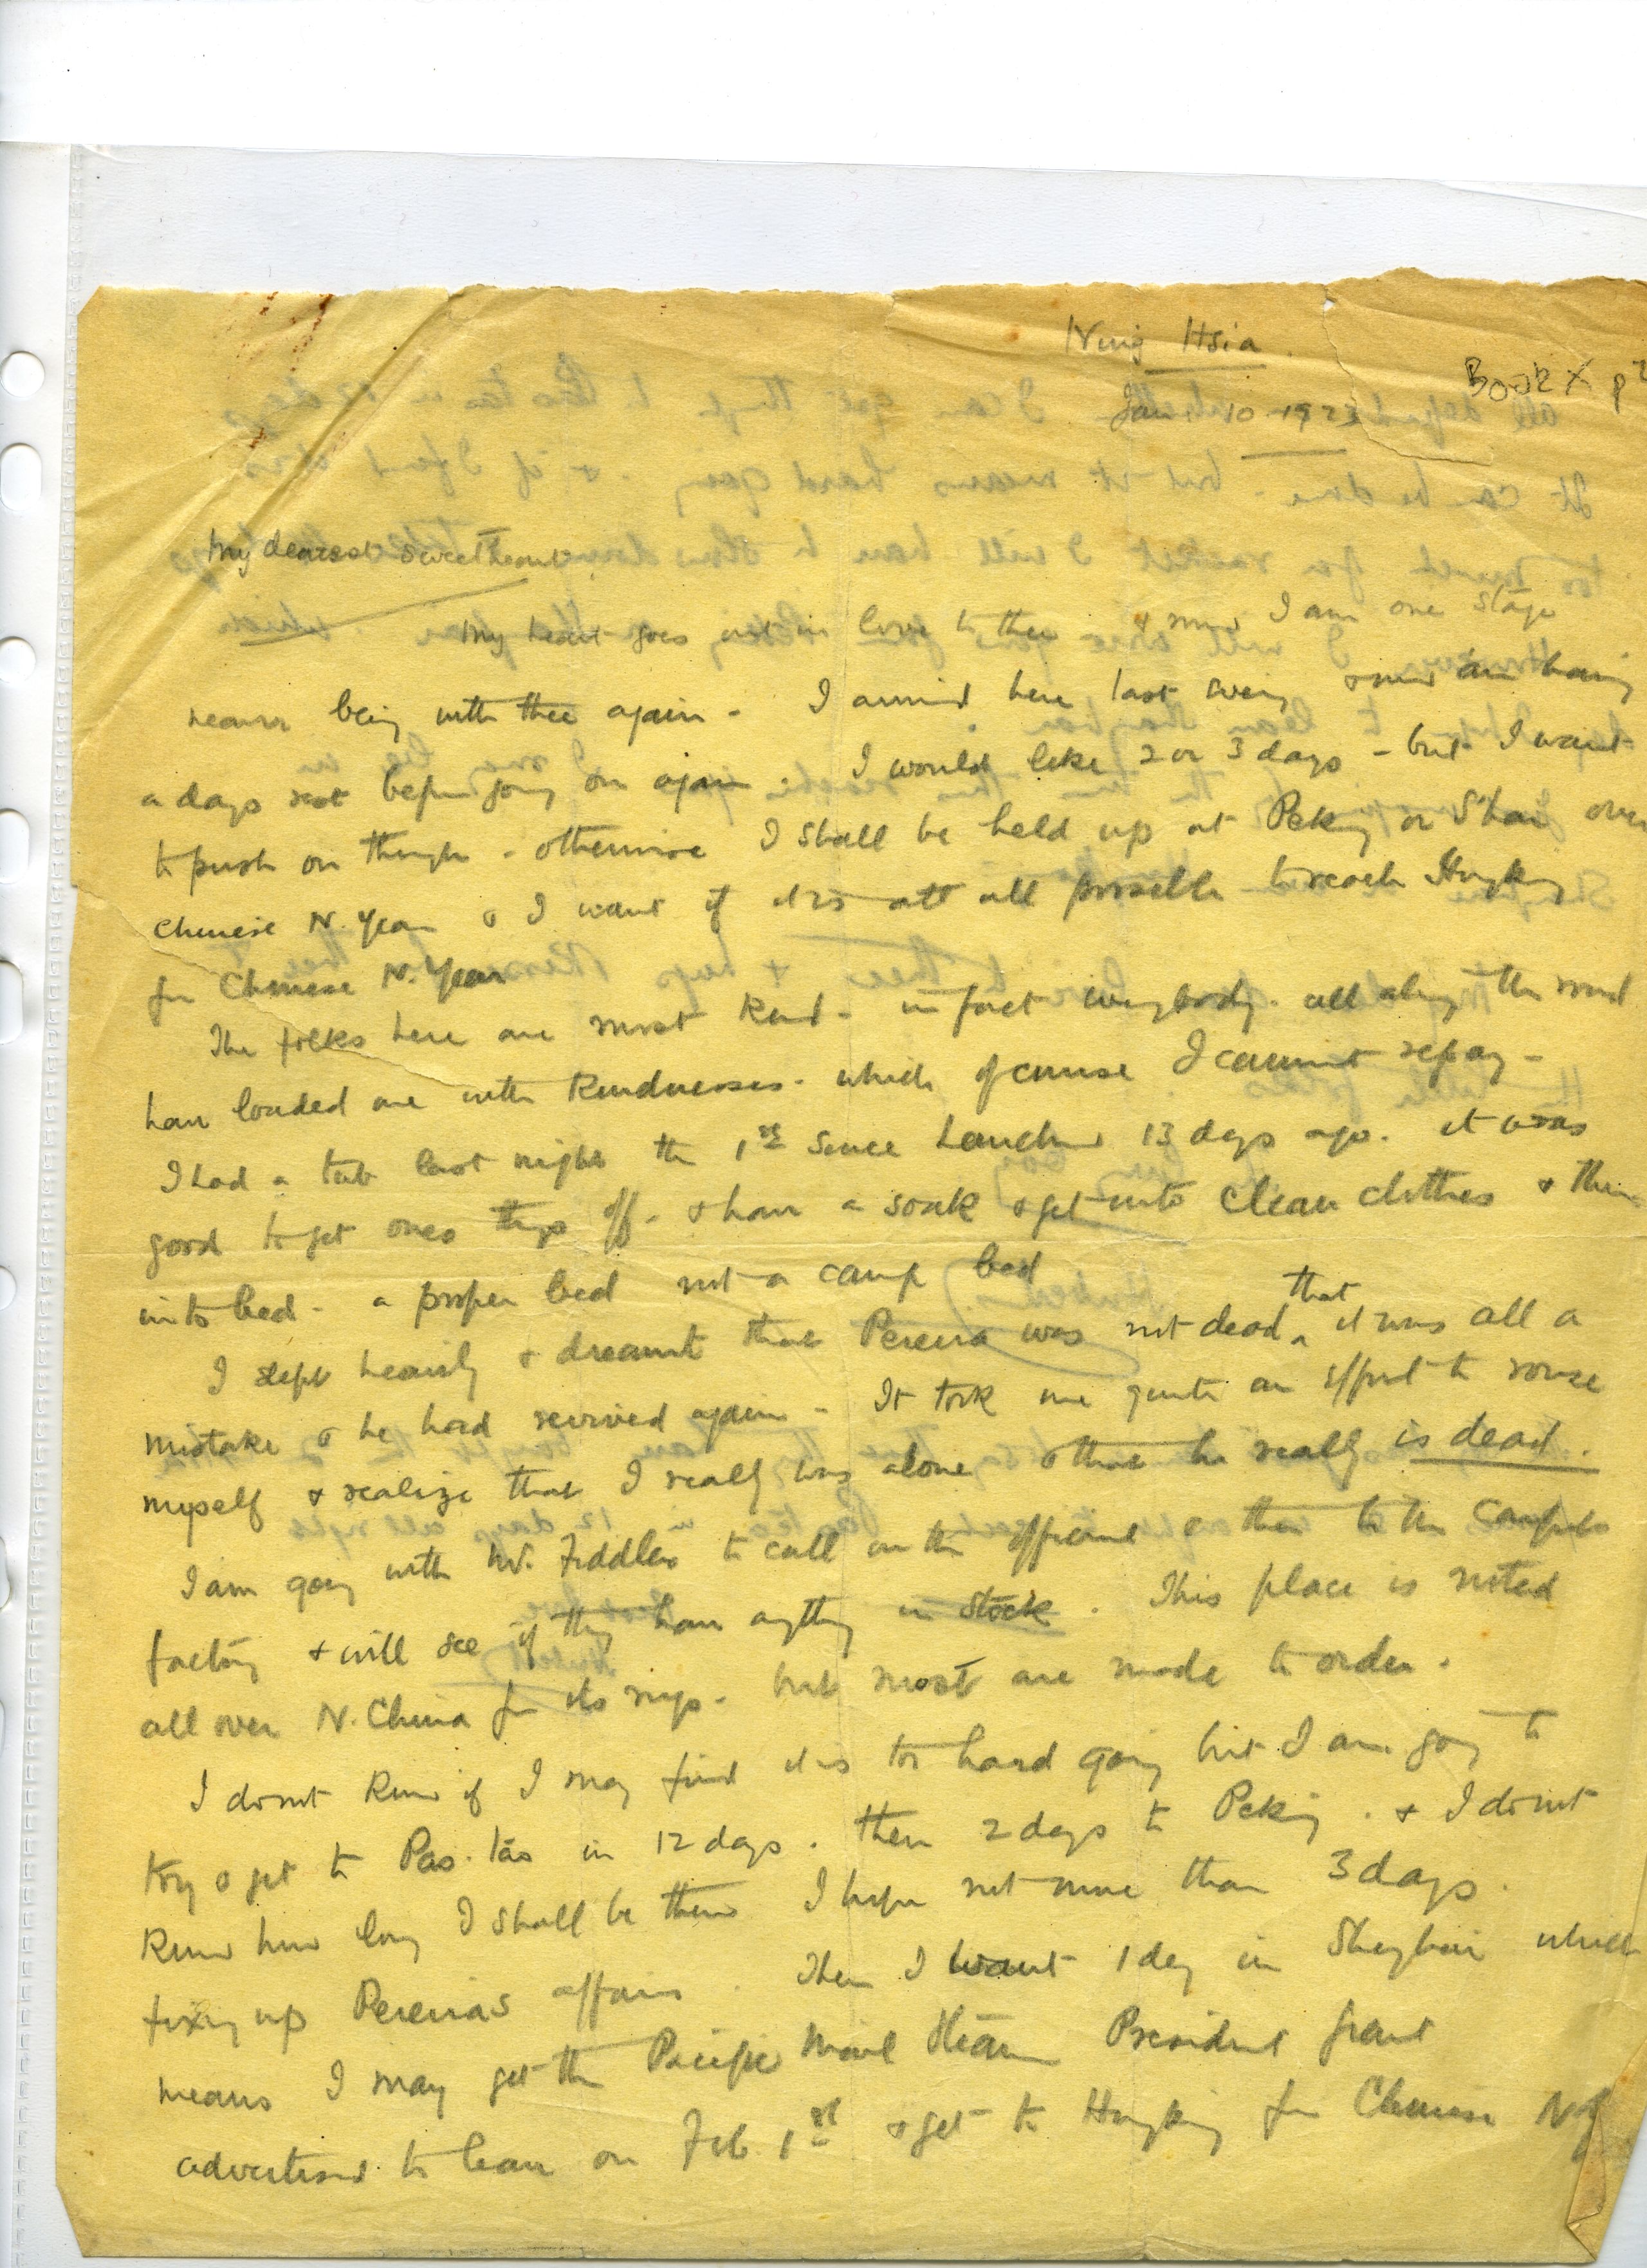 Ning Hsia.
Book X p
Jan 10 1923
My dearest sweetheart
My heart goes out in love to thee & now I am one stage
nearer being with thee again - I arrived here last eveing & now am having
a days rest before going on again. I would like 2 or 3 days - but I want
to push on though - otherwise I shall be held up at Peking or S'hai over
Chinese N. Year & I want if it is att all possible to reach Hongkong
for Chinese N. Year
The folks here are most kind - in fact everybody. all along the road
have loaded me with kindnesses. which of course I cannot repay -
I had a tub last night the 1st since Lanchow 13 days ago. it was
good to get ones things off - & have a soak & get into clean clothes & then
into bed - a proper bed not a camp bed
I slept heavily & dreamt that Pereira was not dead that it was all a
mistake & he had revived again - It took me quite an effort to rouse
myself & realize that I really was alone & that he really is dead.
I am going with Mr. Fiddler to call on the official & then to the Carpets
factory & will see if they have anything in stock. This place is noted
all over N. China for its rugs - but most are made to order.
I dont know if I may find it is too hard going but I am going to
try & get to Pao. tao in 12 days. then 2 days to Peking. & I dont
know how long I shall be there I hope not more than 3 days.
fixing up Pereiras affairs. Then I want 1 day in Shanghai which
means I may get the Pacific Mail Steam President Grant
advertised to leave on Feb. 1st & get to Hongkong for Chinese NY